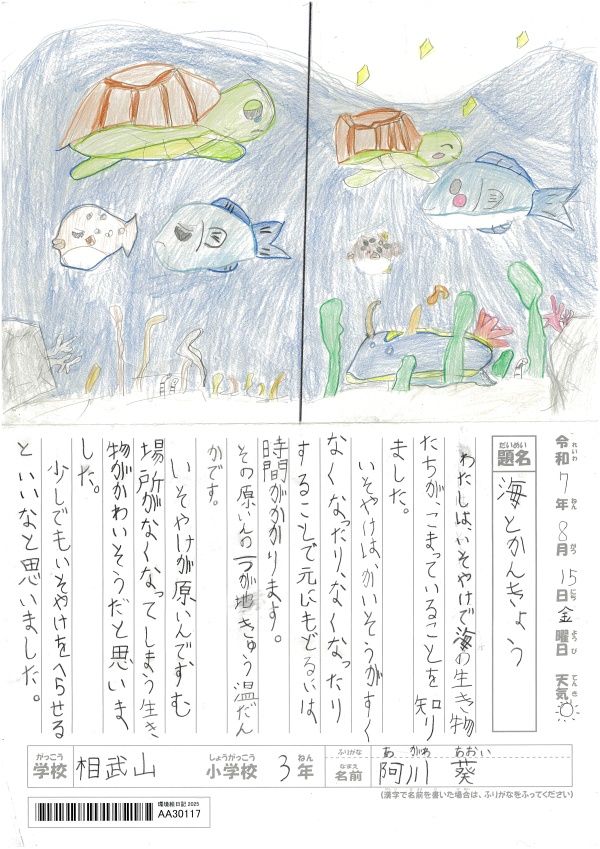 令和7年8月15日金曜日 天気
れいわ ねん がつ にち ようび てんき
だいめい
題名
海とかんきょう
わたしは、いそやけで海の生き物
たちが、こまっていることを知り
ました。
いそやけは、かいそうがすく
なくなったり、なくなったり
することで元にもどるには
時間がかかります。
その原いんの一つが地きゅう温だん
かです。
いそやけが原いんですむ
場所がなくなってしまう生き
物がかわいそうだと思いま
した。
少しでもいそやけをへらせる
といいなと思いました。
がっこう しょうがっこう ねん
学校 相武山 小学校 3年
ふりがな あがわ あおい
なまえ
名前 阿川 葵
(漢字で名前を書いた場合は、ふりがなをふってください)
環境絵日記 2025
AA30117